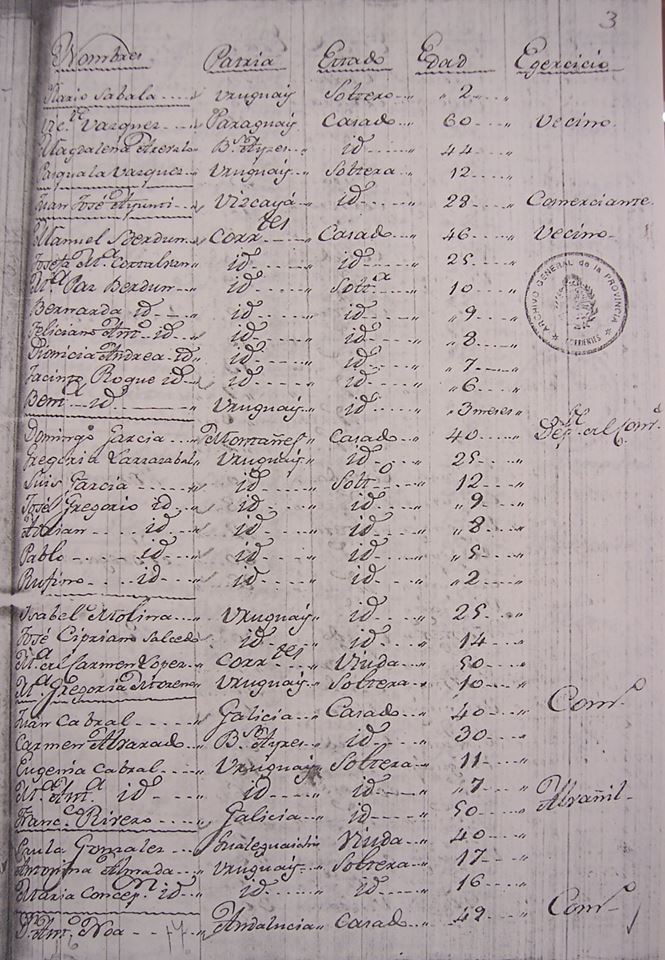 3
Nombres Patria Estado Edad Egercicio
Mario Sabala Uruguay Soltero 2
Vic.te Vazquez Paraguay Casado 60 Vecino
Magdalena B.s Ayres id 44
Pasquala Vazquez Uruguay Soltera 12
Juan José Vizcaya id 28 Comerciante
Manuel Berdum Corr.tes Casado 46 Vecino
Josefa M.a id id 25
M.a Paz Berdum id Solt.a 10
Bernarda id id id 9
Feliciano Ant.o id id id 8
Dionicia Andrea id id id 7
Jacinto Roque id id id 6
id Uruguay id 3 meses
Domingo Garcia Montañes Casado 40
Gregoria Larrazabal Uruguay id 25
Luis Garcia id Solt.o 12
José Gregorio id id id 9
Adrian id id id 8
Pablo id id id 5
Rufino id id id 2
Isabel Molina Uruguay id 25
José Cipriano Salcedo id id 14
M.a del Carmen Lopez Corr.tes Viuda 50
M.a Gregoria Moreno Uruguay Soltera 10
Juan Cabral Galicia Casado 40 Com.o
Carmen Alvarado B.s Ayres id 30
Eugenia Cabral Uruguay Soltera 11
M.a Ant.a id id id 7
Franc.o Rivero Galicia id 50 Alvañil
Paula Gonzales Viuda 40
Antonina Almada Uruguay Soltera 17
Maria Concep.n id id id 16
D.n Ant.o Noa Andalucia Casado 49 Com.o
ARCHIVO GENERAL de la PROVINCIA
CORRIENTES